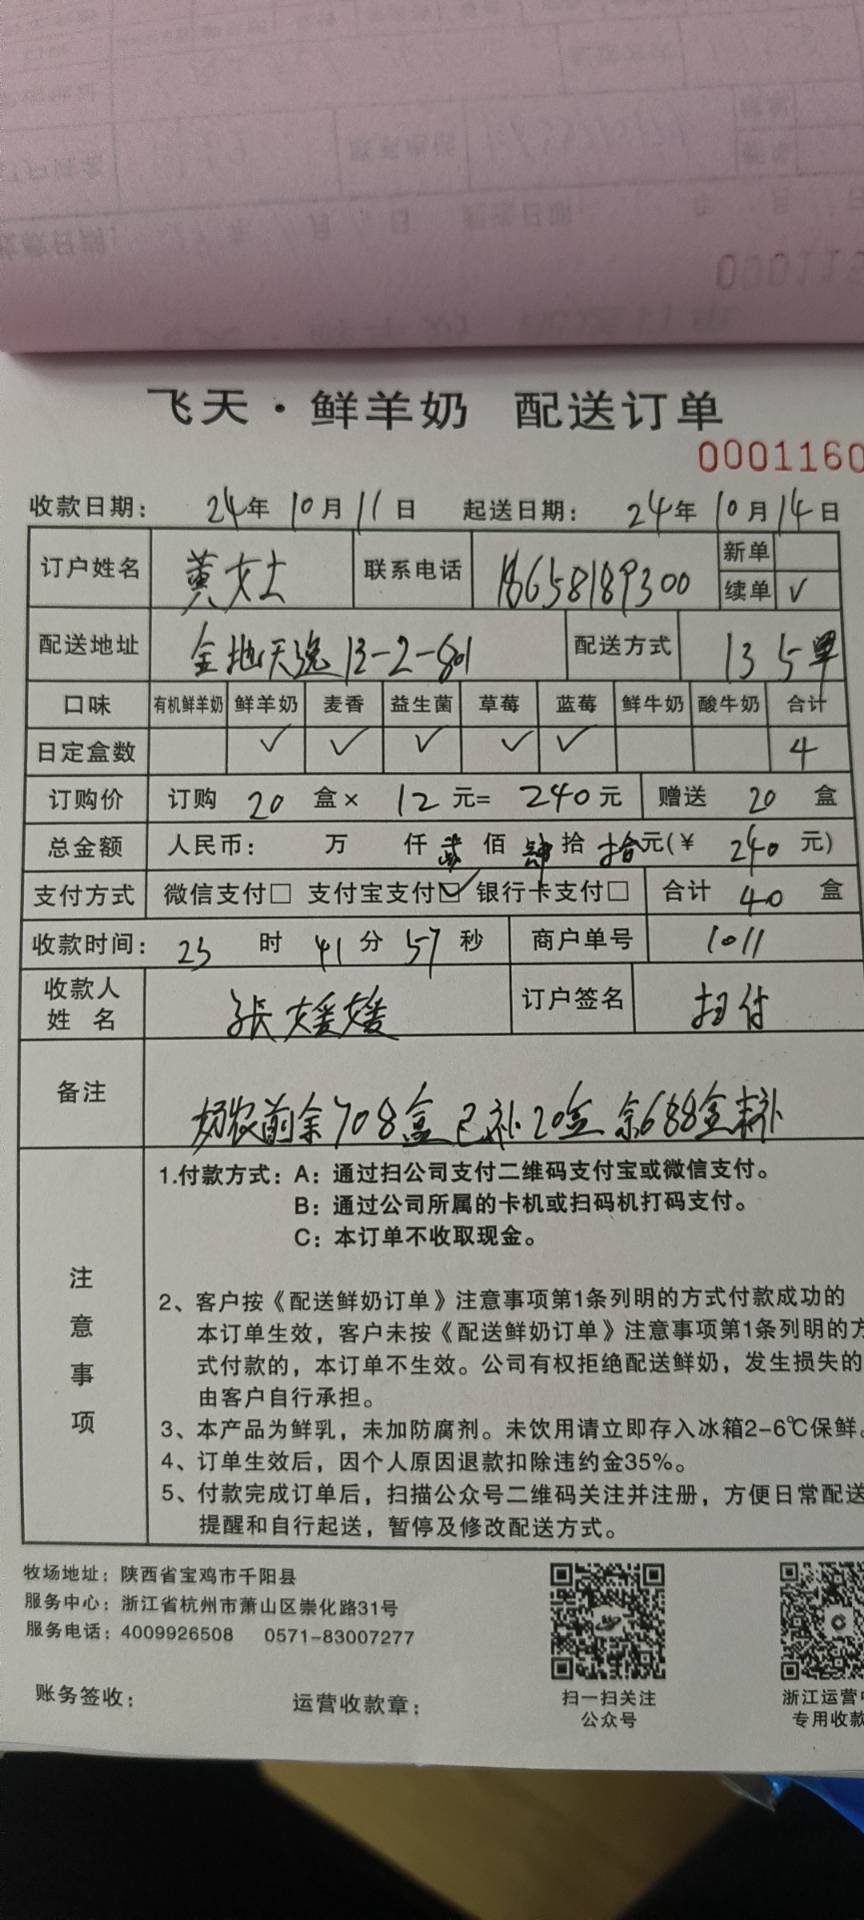 飞天·鲜羊奶 配送订单
0001160
收款日期： 24年 10月 11日 起送日期： 24年 10月 14日
订户姓名 黄女士 联系电话 18658189300 新单
续单 ✓
配送地址 金地天逸 13-2-801 配送方式 135单
口味 有机鲜羊奶 鲜羊奶 麦香 益生菌 草莓 蓝莓 鲜牛奶 酸牛奶 合计
日定盒数 ✓ ✓ ✓ ✓ ✓ 4
订购价 订购 20 盒× 12 元= 240 元 赠送 20 盒
总金额 人民币： 万 仟 贰 佰 肆 拾 拾元(¥ 240 元)
支付方式 微信支付□ 支付宝支付☑ 银行卡支付□ 合计 40 盒
收款时间： 23 时 41 分 57 秒 商户单号 1011
收款人姓名 张媛媛 订户签名 扫付
备注 奶农前余708盒 已补20盒 余688盒未补
注意事项
1.付款方式：A：通过扫公司支付二维码支付宝或微信支付。
B：通过公司所属的卡机或扫码机打码支付。
C：本订单不收取现金。
2、客户按《配送鲜奶订单》注意事项第1条列明的方式付款成功的
本订单生效，客户未按《配送鲜奶订单》注意事项第1条列明的方
式付款的，本订单不生效。公司有权拒绝配送鲜奶，发生损失的
由客户自行承担。
3、本产品为鲜乳，未加防腐剂。未饮用请立即存入冰箱2-6℃保鲜。
4、订单生效后，因个人原因退款扣除违约金35%。
5、付款完成订单后，扫描公众号二维码关注并注册，方便日常配送
提醒和自行起送，暂停及修改配送方式。
牧场地址：陕西省宝鸡市千阳县
服务中心：浙江省杭州市萧山区崇化路31号
服务电话：4009926508 0571-83007277
扫一扫关注
公众号
浙江运营
专用收款
账务签收： 运营收款章：